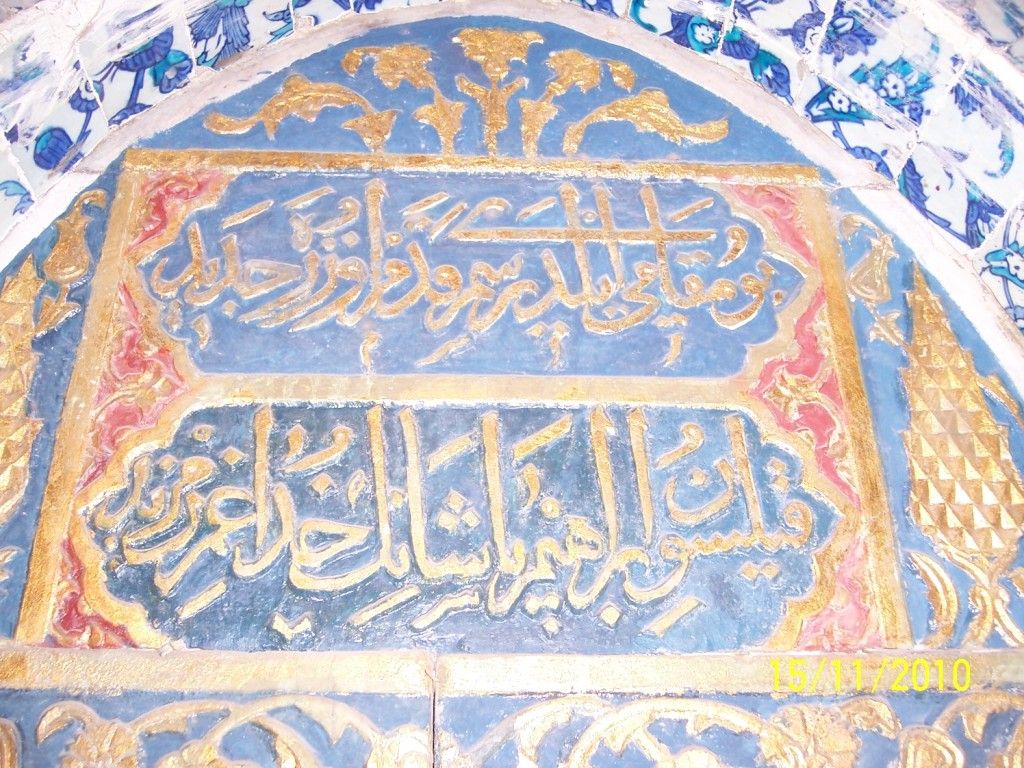 بو مقامی ایلدی اوزره جدید
قیلسون ابراهیم پاشانك خدا عمرن مزید
15/11/2010